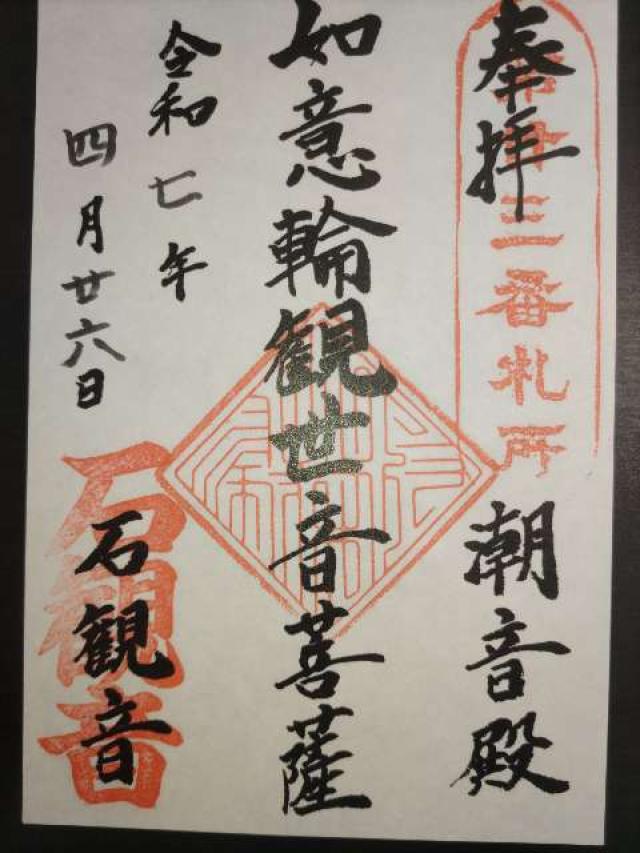 奉拝
第廿三番札所
潮音殿
如意輪観世音菩薩
令和七年
四月廿六日
石観音
石観音